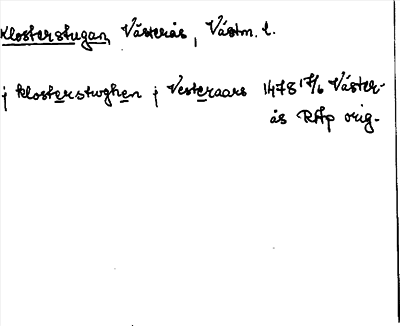 Klosterstugan, Västerås, Västm. l.
j klosterstwghen j Vesteraars 1478 17/6 Väster-
ås RAp orig.